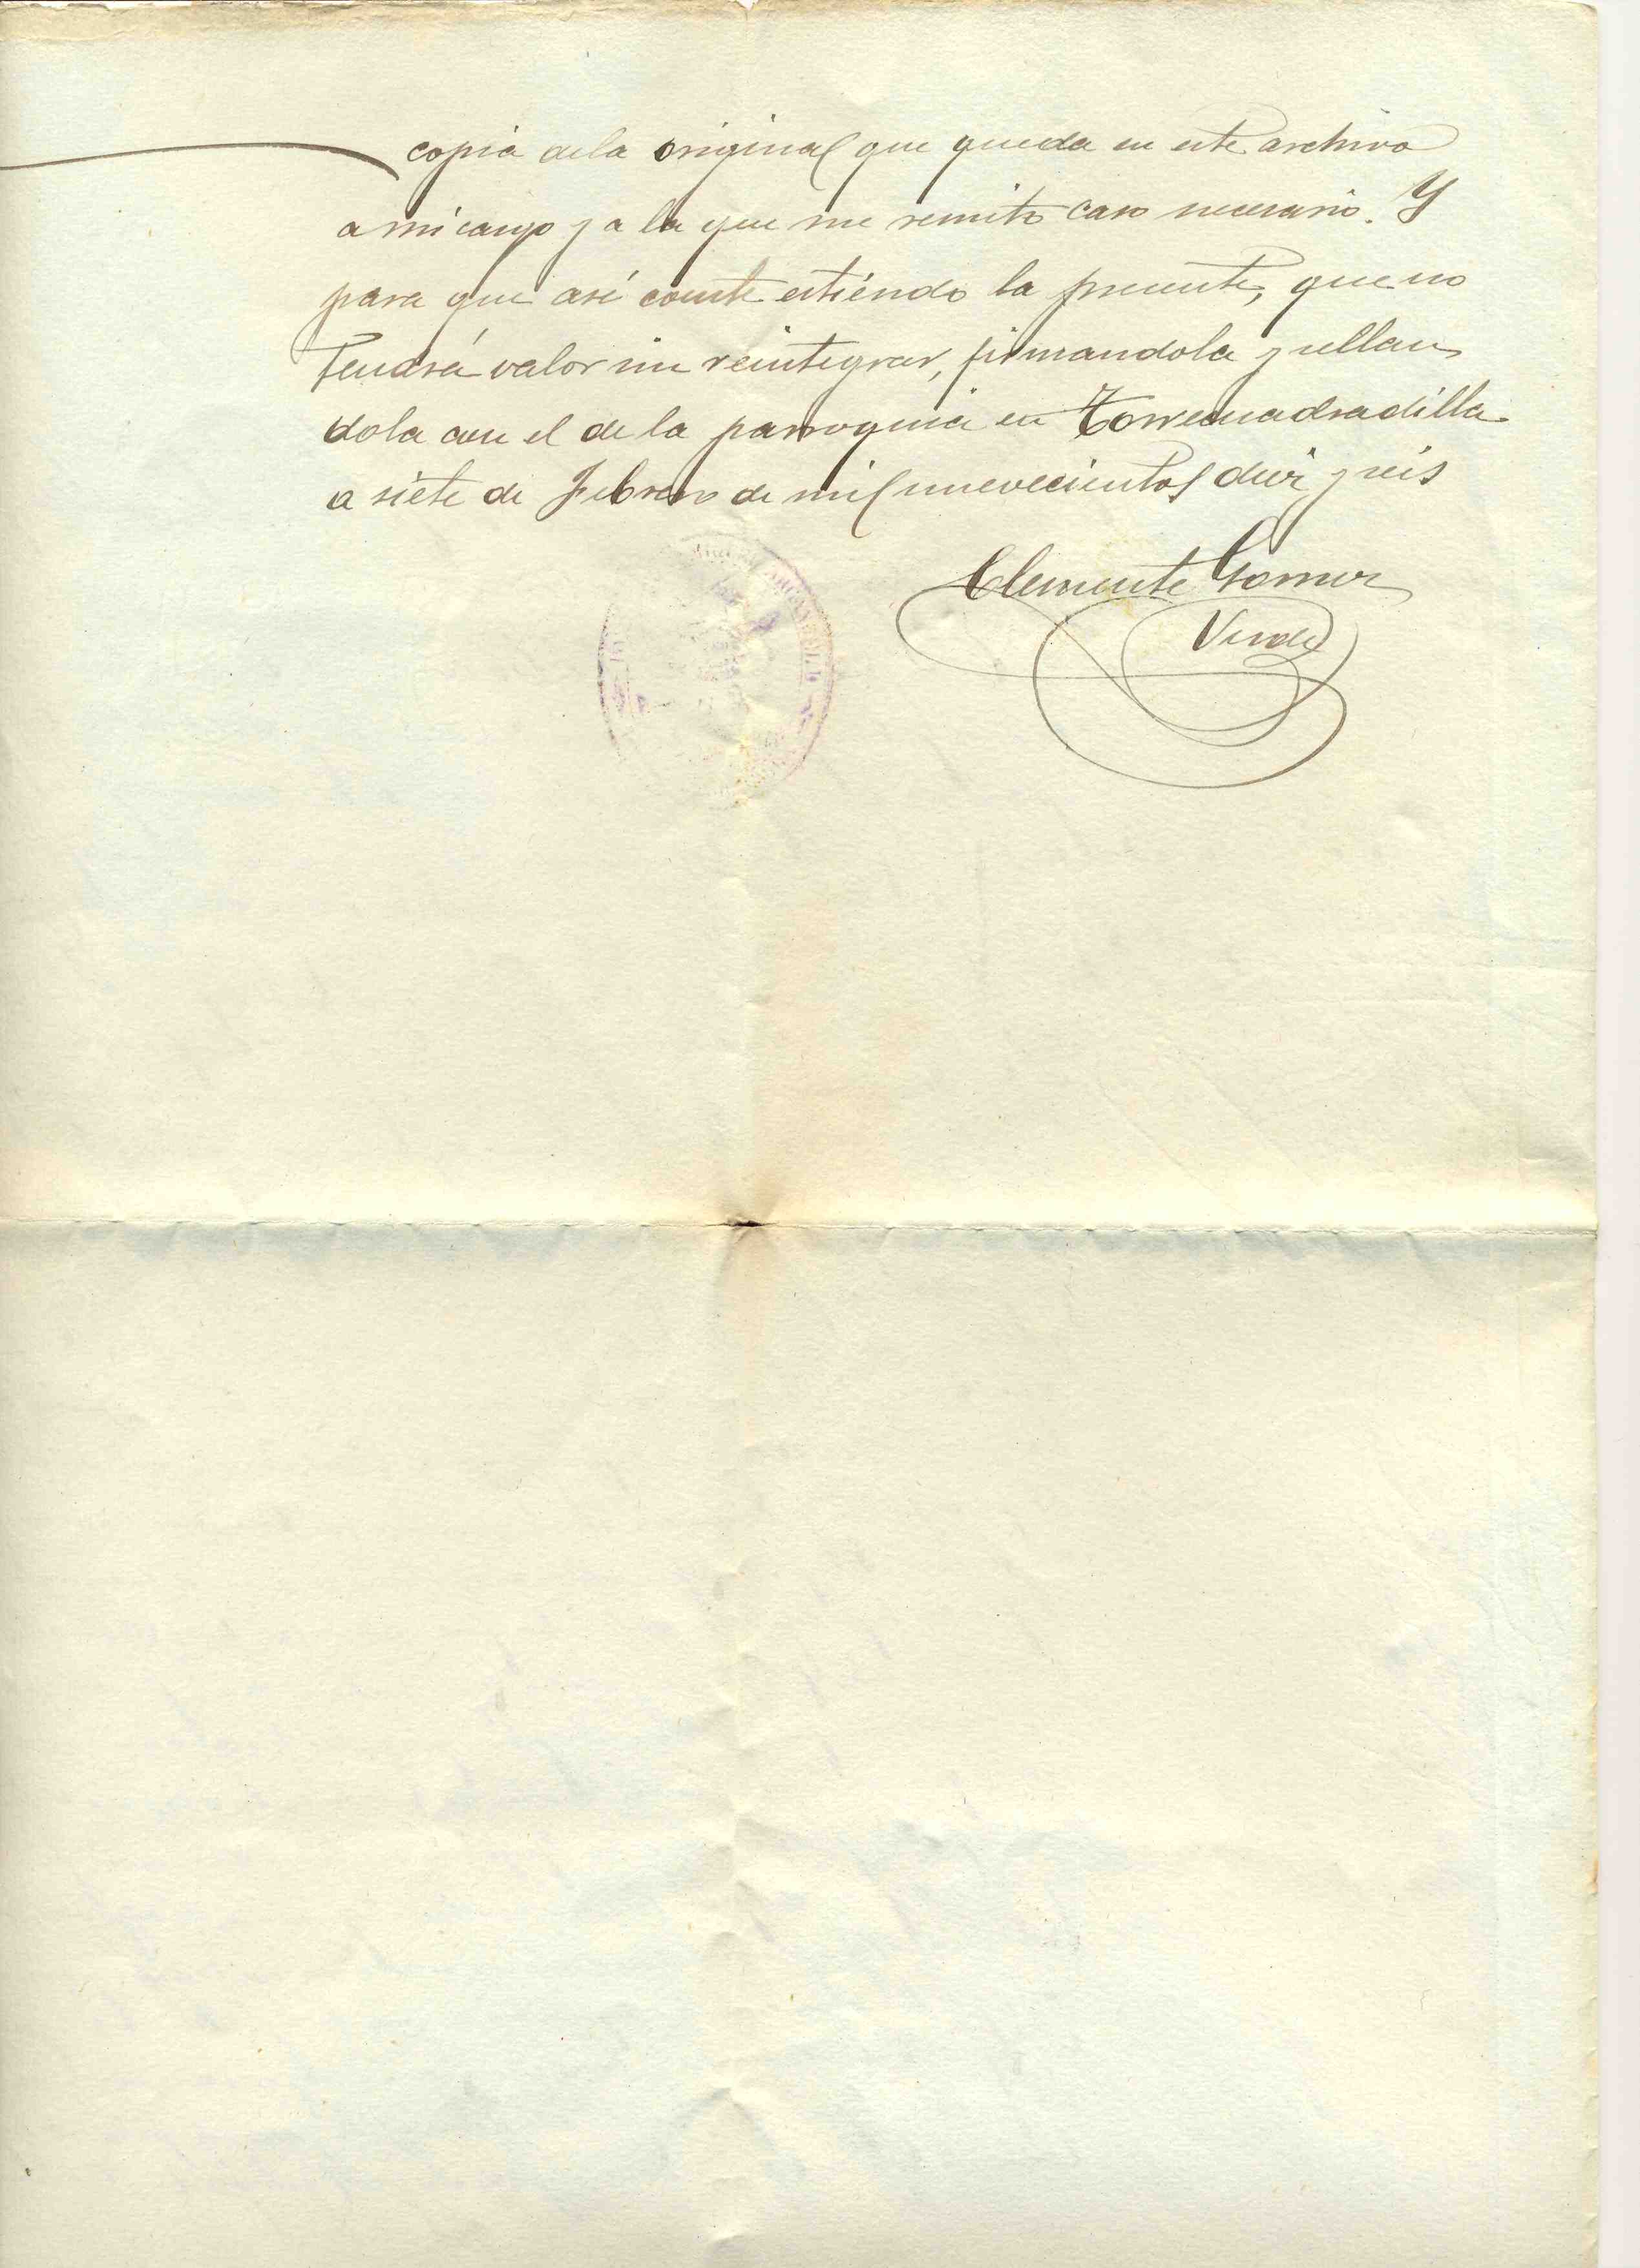 copia dela original que queda en este archivo
a mi cargo y a la que me remito caso necesario. Y
para que así conste estiendo la presente, que no
tendrá valor sin reintegrar, firmandola y sellan
dola con el de la parroquia en Torrecuadradilla
a siete de Febrero de mil nuevecientos diez y seis
Clemente Gomez
Verde